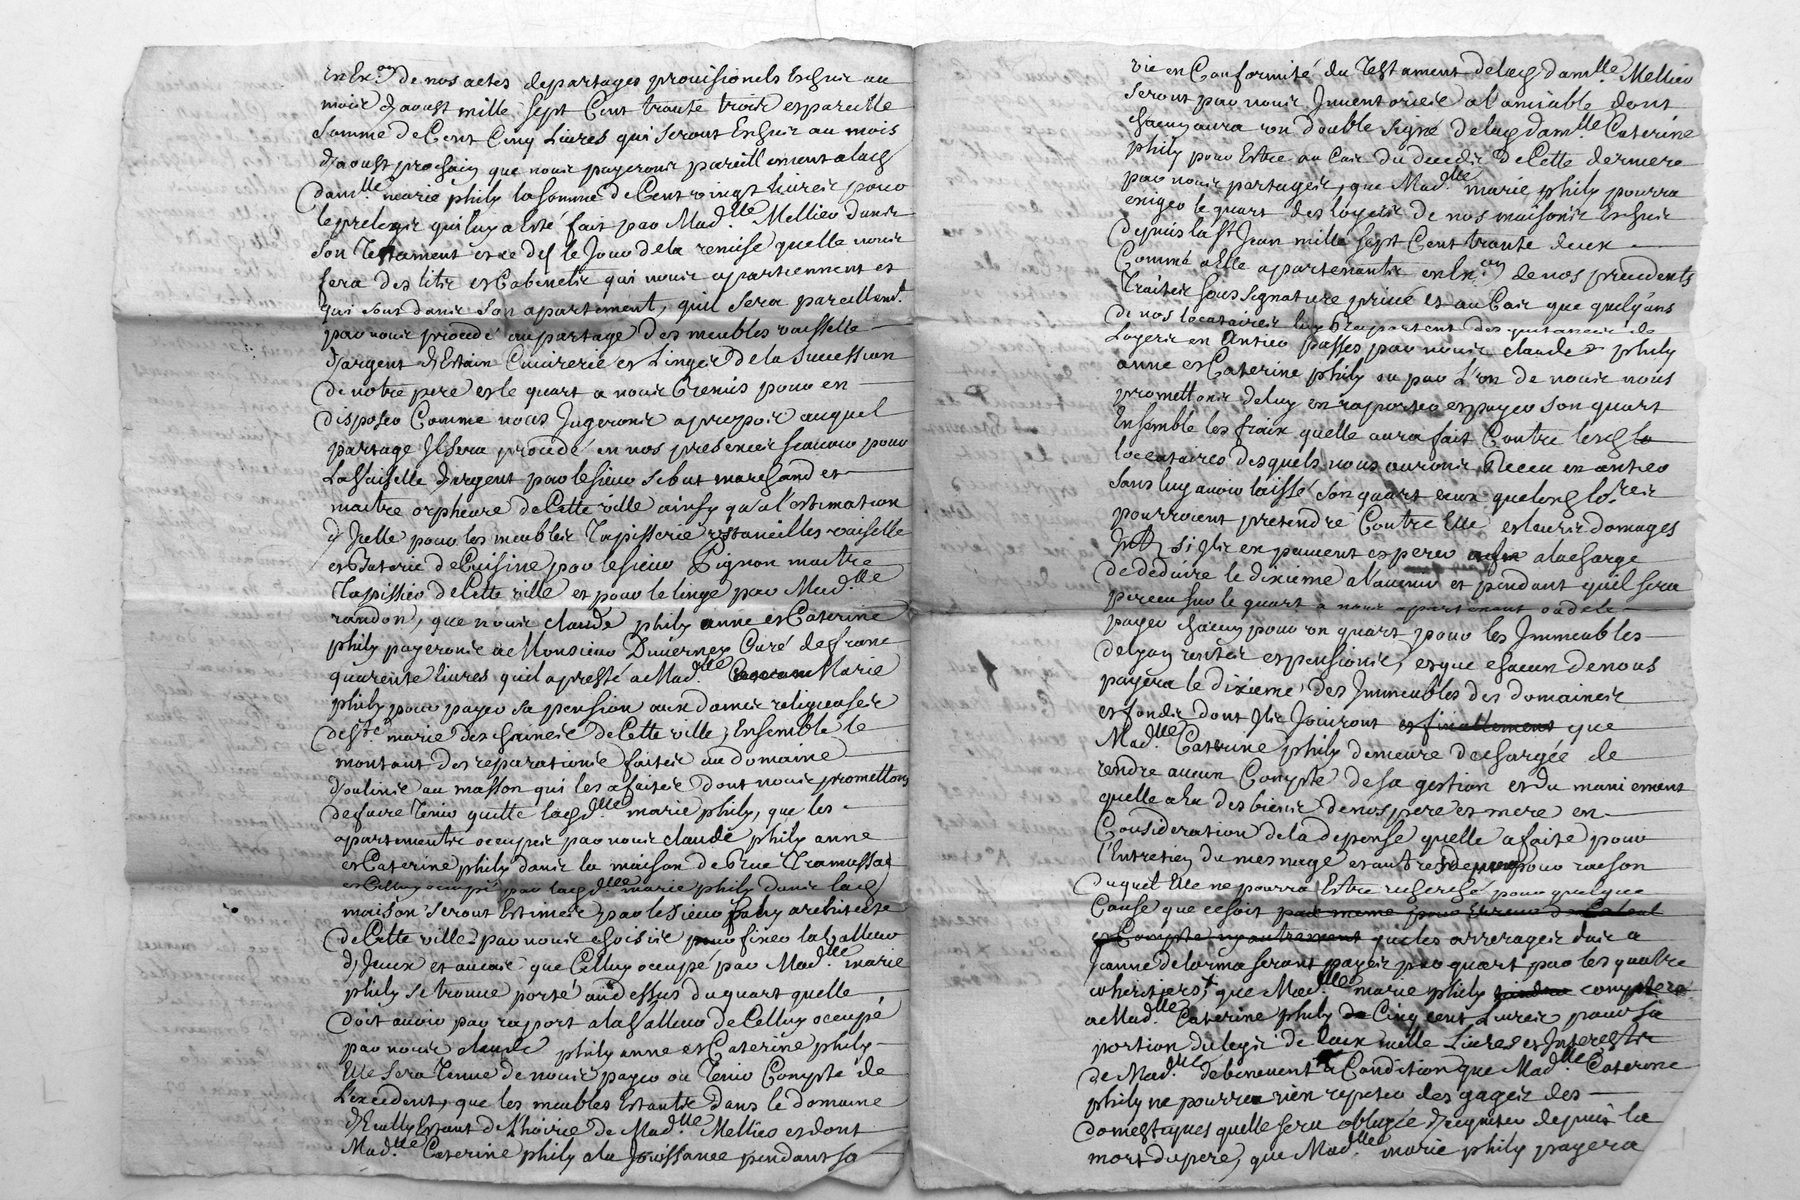 en Ex.on de nos actes departages provisionels Escheus au
mois d'aoust mille sept Cent trante trois et pareille
somme de Cent Cinq Livres qui seront Escheus au mois
d'aoust prochain que nous payerons pareillement a lad
damlle marie phily la somme de Cent vingt Livres pour
le prelegs qui luy a Esté fait par Madlle Mellier dans
son Testament et ce des le Jour de la remise quelle nous
fera des lits et Cabinets qui nous apartiennent et
qui sont dans son apartement, quil sera pareillemt
par nous procedé au partage des meubles vaisselle
d'argent d'Estain Cuivrerie et Linges de la succession
de notre pere et le quart a nous remis pour en
disposer Comme nous Jugerons apropos auquel
partage Il sera procedé en nos presences scavoir pour
la vaisselle d'argent par le sieur Sibut marchand et
maitre orpheure de Cette ville ainsy qu'a l'estimation
d'Icelle pour les meubles Tapisserie vaiselle
et Baterie de Cuisine par le sieur Pignon maitre
Tapissier de Cette ville et pour le linge par Madlle
randon, que nous claude phily anne et Caterine
phily payerons a Monsieur Duverney Curé de franc
quarente livres quil a presté a Madlle Marie
phily pour payer sa pension aux dames religieuses
de Ste marie des chaines de Cette ville, Ensemble le
montant des reparations faites au domaine
d'oulins au masson qui les a faites dont nous promettons
de faire Tenir quitte lad dlle marie phily, que les
apartements occupés par nous claude phily anne
et Caterine phily dans la maison de rue Tramassac
et Celluy occupé par lad dlle marie phily dans lad
maison seront Estimés par le sieur architecte
de Cette ville par nous choisis pour fixer la valleur
d'Iceux et au cas que Celluy occupé par Madlle marie
phily se trouve porté au dessus du quart quelle
doit avoir par raport a la valleur de Celluy occupé
par nous claude phily anne et Caterine phily
Elle sera Tenue de nous payer ou Tenir Compte de
L'excedent, que les meubles Estants dans le domaine
d'Eculy Estant de L'hoirie de Madlle Mellier et dont
Madlle Caterine phily a la Jouissance pendant sa
vie en Conformité du Testament de lad damlle Mellier
seront par nous Inventoriés a l'amiable dont
chacun aura un double signé de lad damlle Caterine
phily pour Estre au Cas du decés de Cette derniere
par nous partagés, que Madlle marie phily pourra
exiger le quart des loyers de nos maisons Escheus
depuis la St Jean mille sept Cent trante deux
Comme a Elle apartenants en Ex.on de nos precedents
Traités sous signature privé et au Cas que quelq'uns
de nos locataires luy raportent des quitances de
Loyers en Antier passés par nous claude phily
anne et Caterine phily ou par L'un de nous nous
promettons de luy en raporter et payer son quart
Ensemble les fraix quelle aura fait Contre lesd
locataires desquels nous aurons Receu en antier
sans luy avoir laissé son quart ceux que lesd lo.res
pourroient pretendre Contre Elle et leurs domages
Intts si Ils en peuvent esperer a la charge
de deduire le dixieme a l'avenir et pendant quil sera
perceu sur le quart a nous apartenant ou de le
payer chacun pour un quart pour les Immeubles
de Lyon rentes et pensions, et que chacun de nous
payera le dixieme des Immeubles des domaines
et fonds dont Ils Jouiront et finallement que
Madlle Caterine phily demeure dechargée de
rendre aucun Compte de sa gestion et du maniement
quelle a Eu des biens de nos pere et mere en
Consideration de la depense quelle a faite pour
l'Entretien du mesnage et autres pour raison
duquel Elle ne pourra Estre recherché pour quelque
Cause que ce soit pas meme pour Erreur de Calcul
et Compte ny autrement que les arrerages dus a
Jeanne delorma seront payés par quart par les quatre
coheritiers, que Madlle marie phily comptera
a Madlle Caterine phily de Cinq cent Livres pour sa
portion du legs de deux mille Livres et Interests
de Madlle debenevent a Condition que Madlle Caterine
phily ne pourra rien repeter des gages des
domestiques quelle sera obligée d'aquiter depuis la
mort du pere, que Madlle marie phily payera